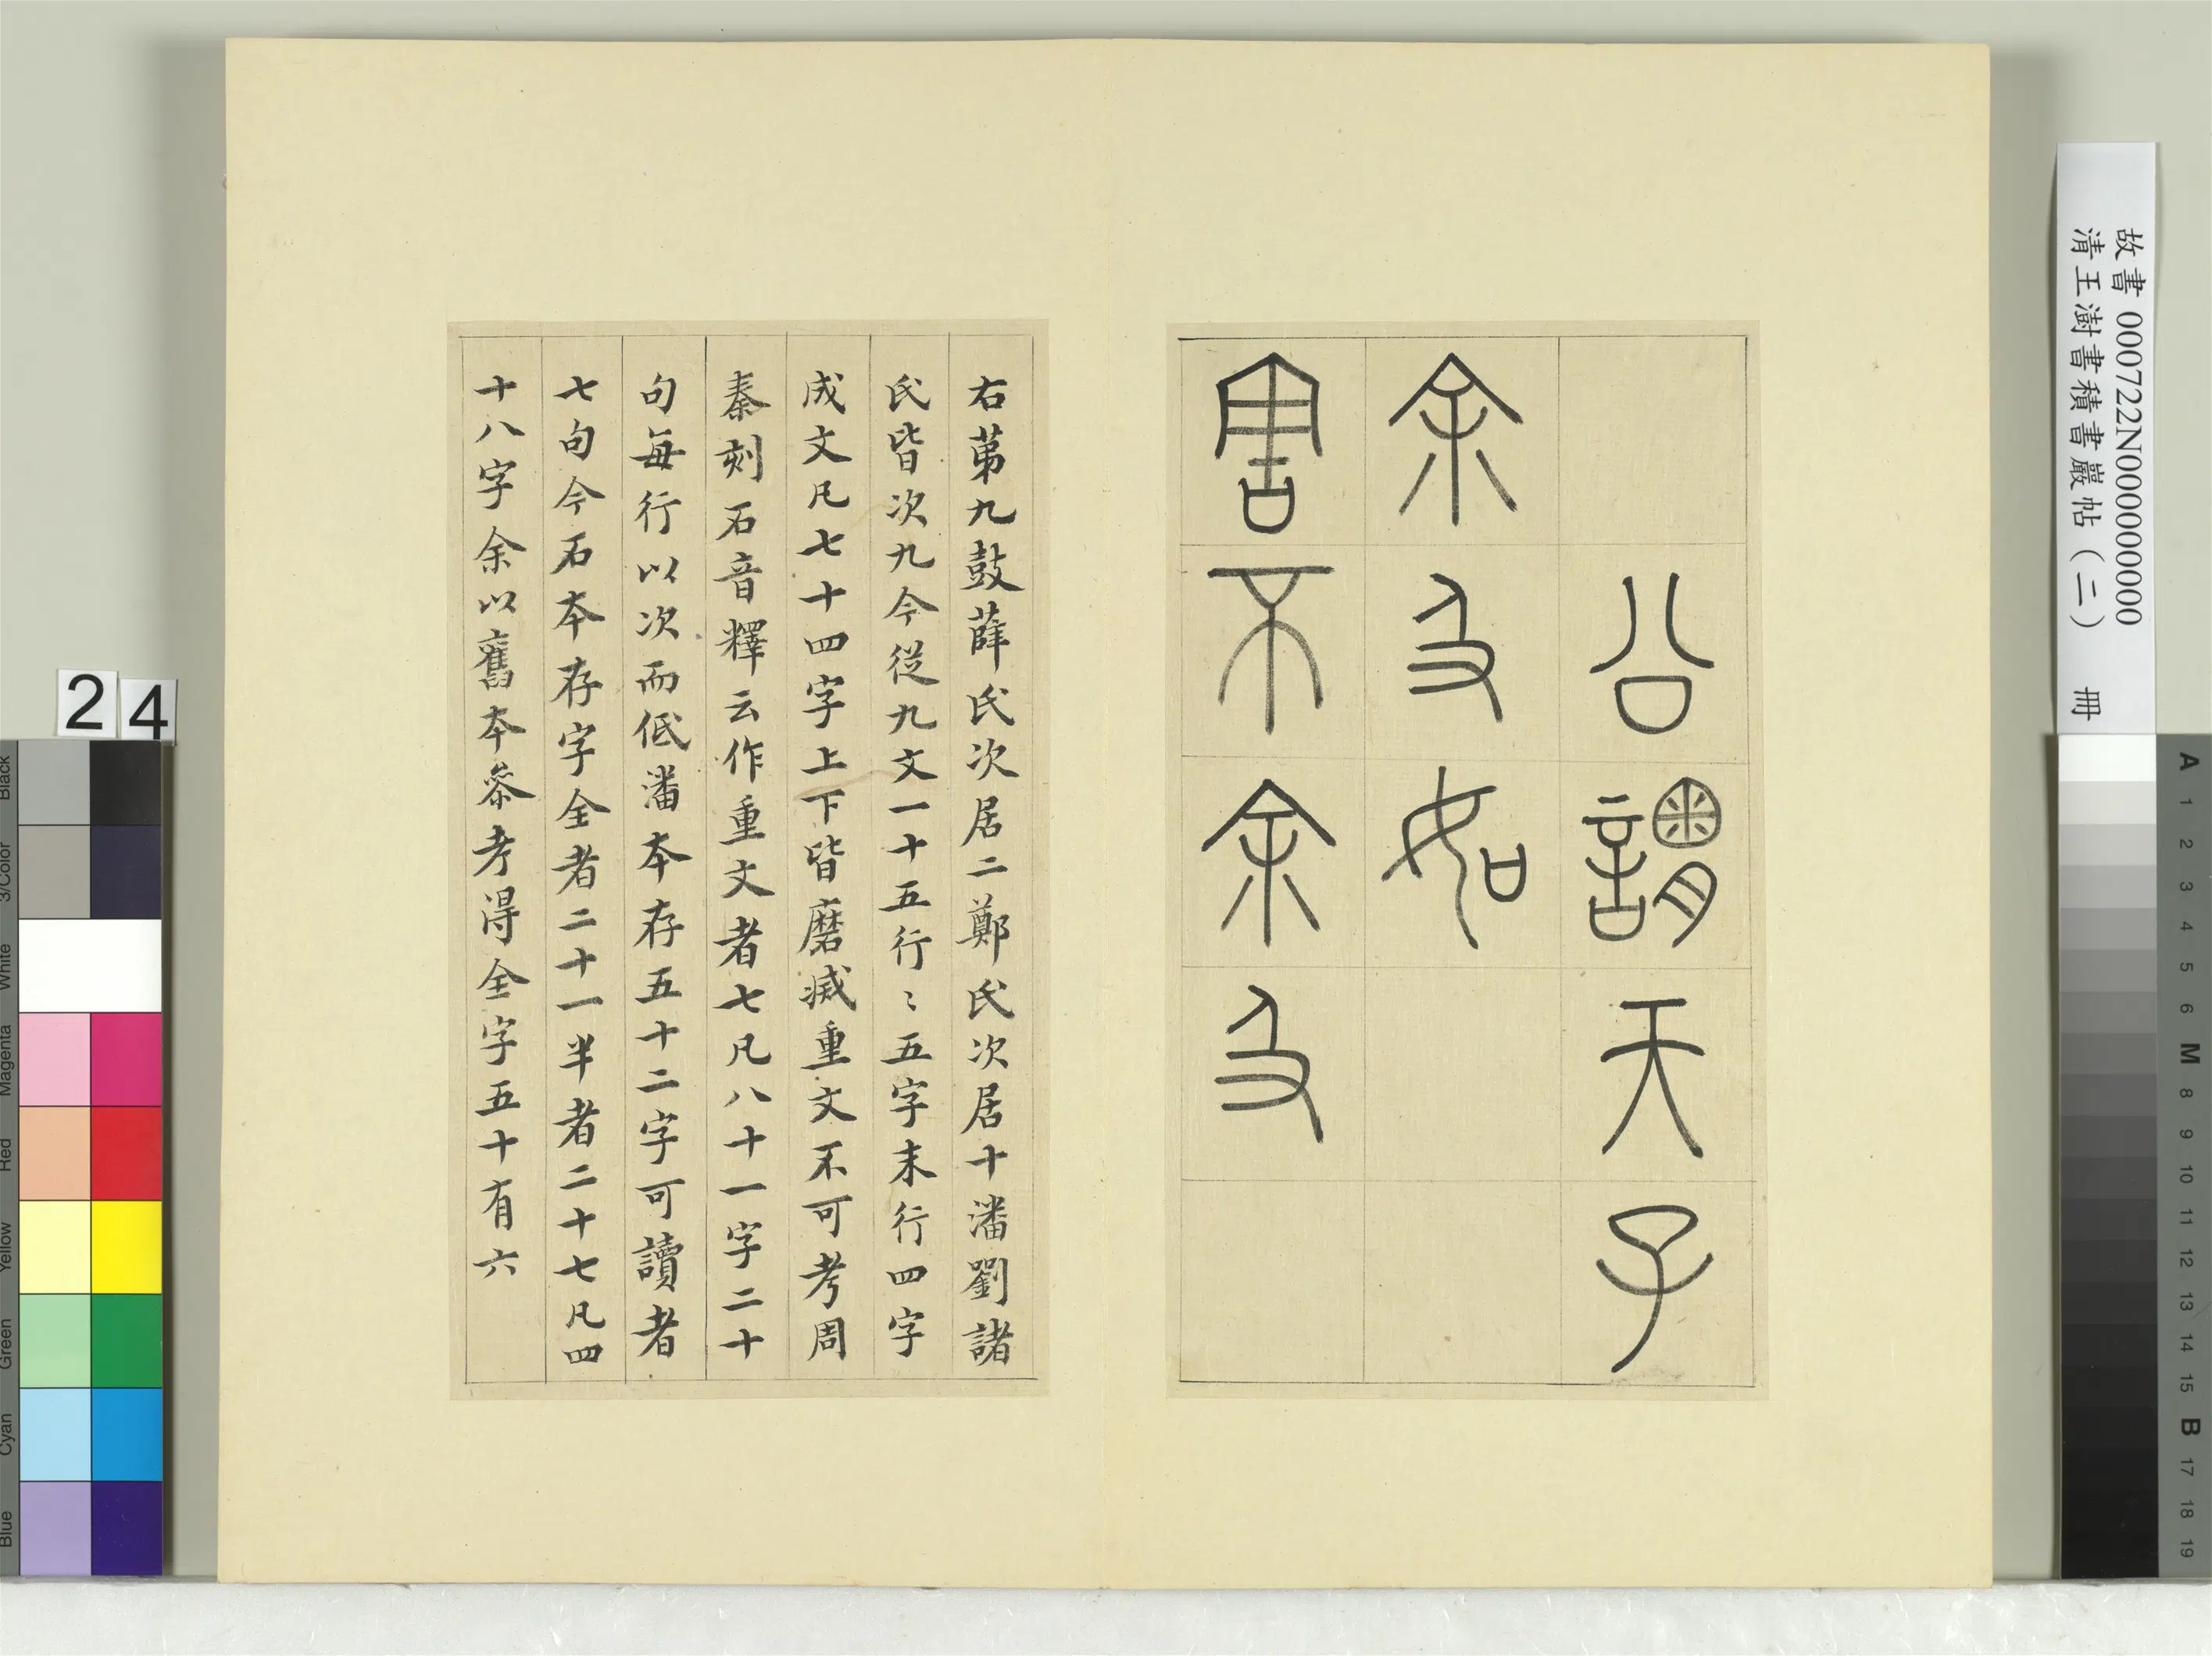 公謂天子
余及如
害不余及
右苐九鼓薛氏次居二鄭氏次居十潘劉諸
氏皆次九今從九文一十五行〻五字末行四字
成文凡七十四字上下皆磨滅重文不可考周
秦刻石音釋云作重文者七凡八十一字二十
句每行以次而低潘本存五十二字可讀者
七句今石本存字全者二十一半者二十七凡四
十八字余以舊本叅考得全字五十有六
故書 000722N000000000
清王澍書積書巖帖（二） 冊
24
Black
3/Color
White
Magenta
Red
Yellow
Green
Cyan
Blue
A
1
2
3
4
5
6
M
8
9
10
11
12
13
14
15
B
17
18
19